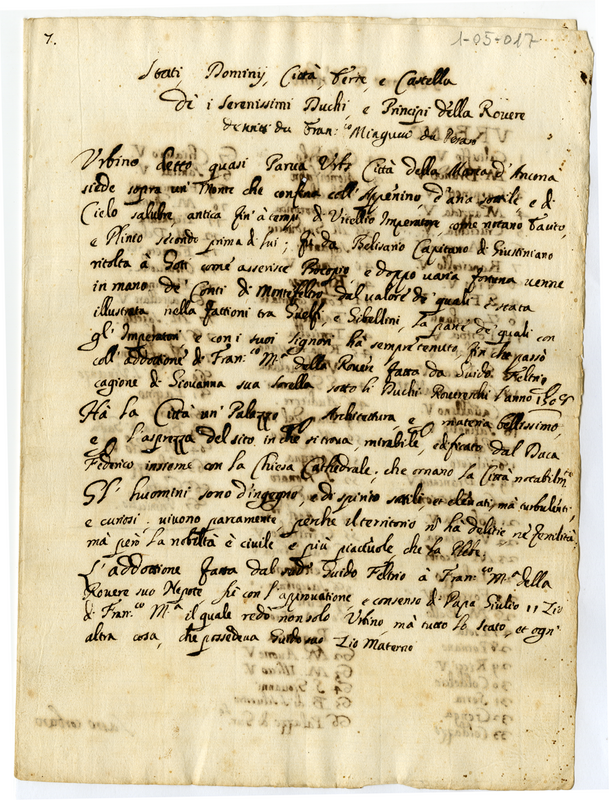 7.
1-05-017
Stati Dominij, Città, Terre, e Castella
Di i Serenissimi Duchi, e Principi della Rovere
da Fran.co Minguci da Pesaro
Urbino detto quasi Parva Urbs Città della Marca d'Ancona
siede sopra un' monte che confina coll' Appenino, d'aria sottile e di
Cielo salubre, antica fin' à tempi di Vitellio Imperatore, come notano Tacito,
e Plinio secondo prima di lui; fù da Belisario Capitano di Giustiniano
ritolta à Goti come asserisce Procopio, e doppo varia fortuna venne
in mano de' Conti di Montefeltro dal valore di quali è stata
illustrata nella fattioni tra Guelfi, e Gibellini, la parte de quali con
gl'Imperatori e con i suoi signori ha sempre tenuto, fin che passò
coll' addottione di Fran.co M.a della Rovere fatta da Guido Feltrio
cagione di Giovanna sua sorella sotto li Duchi Rovereschi l'anno 1508
Hà la Città un' Palazzo Architettura, e materia bellissimo,
e l'asprezza del sito in che si trova, mirabile, edificato dal Duca
Federico insieme con la Chiesa Cathedrale, che ornano la Città notabilm.e
Gl' huomini sono d'ingegno, e di spirito sottili et elevati, mà turbulenti,
e curiosi. vivono parcamente, perche il territorio n' ha delitie nè fertilità;
mà però la nobiltà è civile e più piacevole che la Plebe.
L'addottione fatta dal Guido Feltrio à Fran.co M.a della
Rovere suo Nepote fù con l'approvatione e consenso di Papa Giulio II Zio
di Fran.co M.a il quale redò non solo Urbino, mà tutto lo stato, et ogn'
altra cosa, che possedeva Guido suo Zio Materno